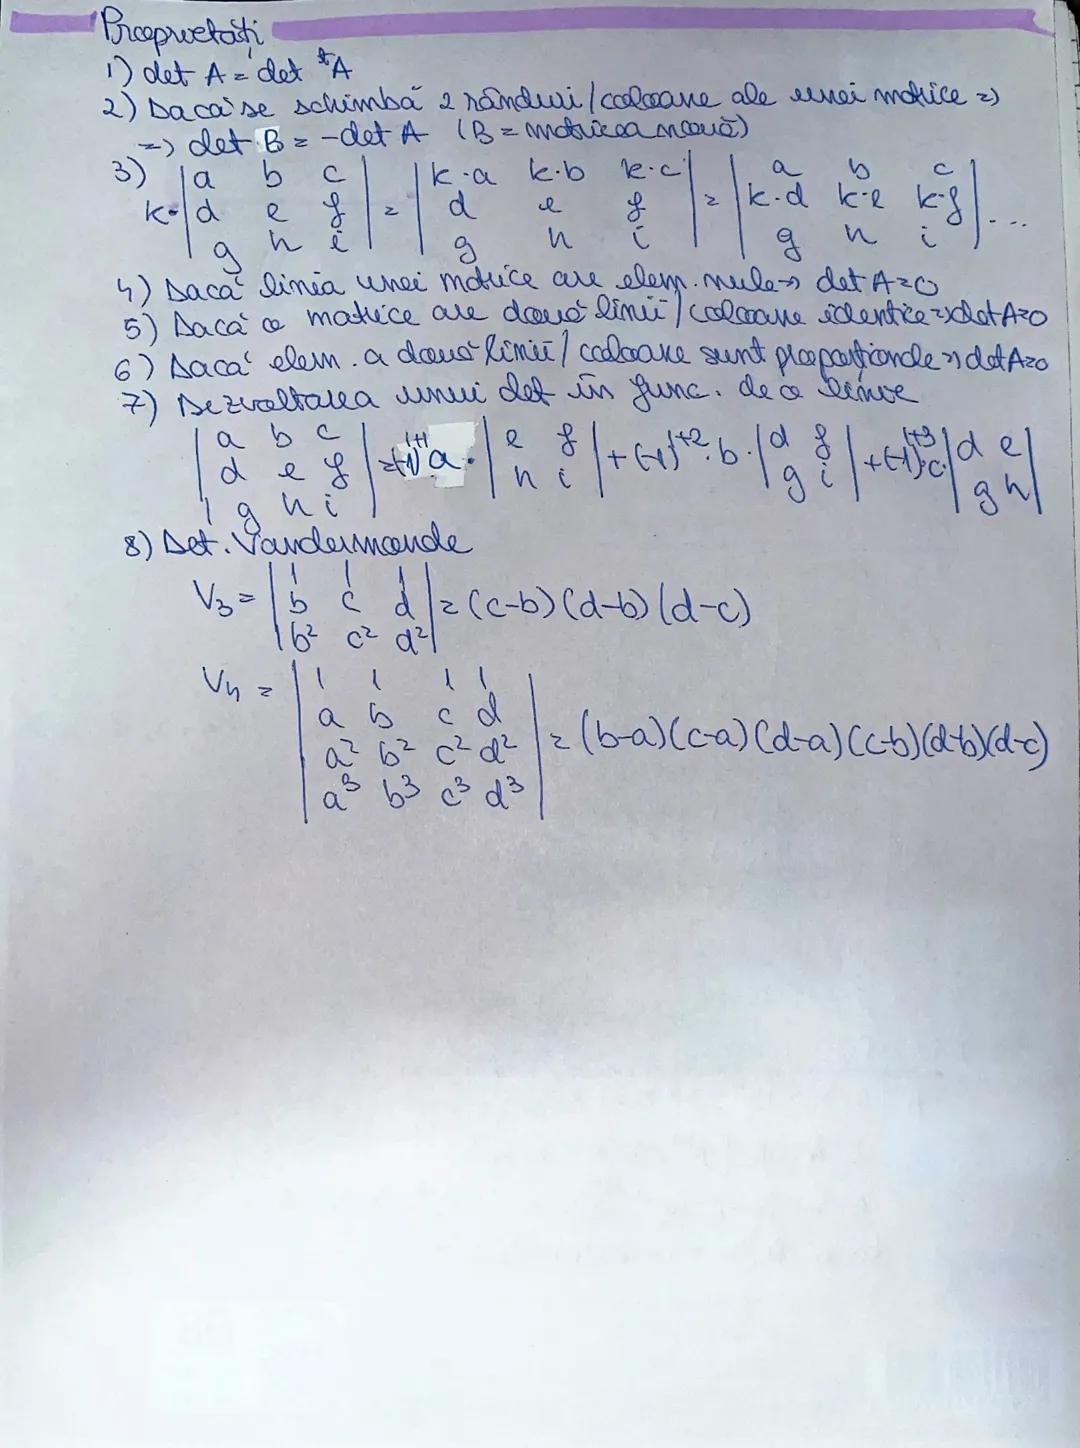 Proprietăți
1) det A = det ᵗA
2) Dacă se schimbă 2 rânduri/coloane ale unei matrice =>
=> det B = -det A (B = matricea nouă)
3) k·|a b c; d e f; g h i| = |k·a k·b k·c; d e f; g h i| = |a b c; k·d k·e k·f; g h i| ...
4) Dacă linia unei matrice are elem. nule => det A=0
5) Dacă o matrice are două linii/coloane identice => det A=0
6) Dacă elem. a două linii/coloane sunt proporționale => det A=0
7) Dezvoltarea unui det în func. de o linie
|a b c; d e f; g h i| = (-1)¹⁺¹ a·|e f; h i| + (-1)¹⁺²·b·|d f; g i| + (-1)¹⁺³·c·|d e; g h|
8) Det. Vandermonde
V₃ = |1 1 1; b c d; b² c² d²| = (c-b)(d-b)(d-c)
V₄ = |1 1 1 1; a b c d; a² b² c² d²; a³ b³ c³ d³| = (b-a)(c-a)(d-a)(c-b)(d-b)(d-c)